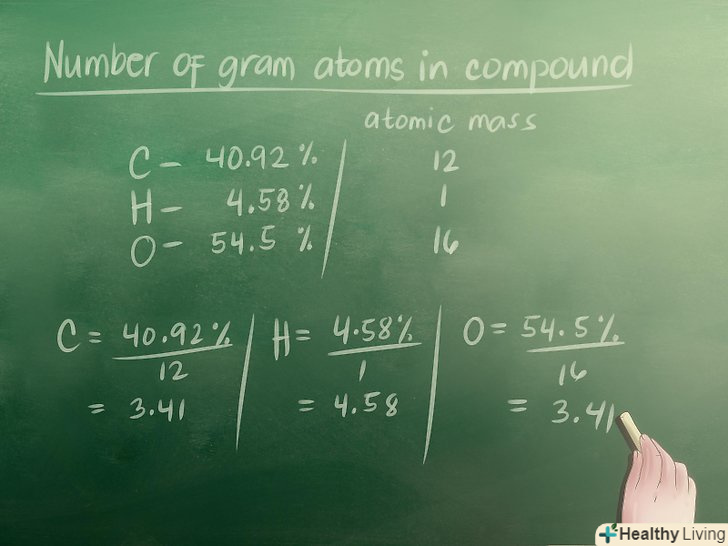 Number of gram atoms in compound
atomic mass
C - 40.92% 12
H - 4.58% 1
O - 54.5% 16
C = 40.92% H = 4.58% O = 54.5%
12 1 16
= 3.41 = 4.58 = 3.41
Healthy Living